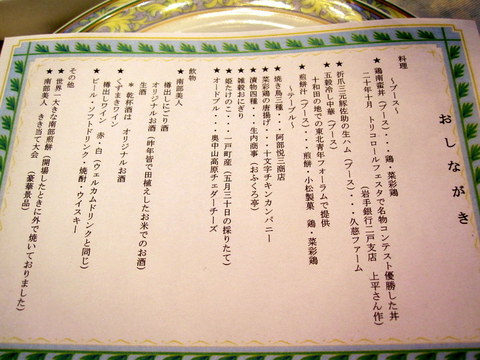 おしながき
料理
〜ブース〜
★ 鶏南蛮丼（ブース）・・・鶏・菜彩鶏
二十年十月 トリコロールフェスタで名物コンテスト優勝した丼
（岩手銀行二戸支店 上平さん作）
★ 折爪三元豚佐助の生ハム（ブース）・・・久慈ファーム
★ 五穀冷し中華（ブース）
十和田の地での東北青年フォーラムで提供
★ 煎餅汁（ブース）・・・煎餅・小松製菓 鶏・菜彩鶏
〜テーブル〜
★ 焼き鳥三種・・・阿部悦三商店
★ 菜彩鶏の唐揚げ・・・十文字チキンカンパニー
★ 漬物四種・・・生内商事（おふくろ亭）
★ 雑穀おにぎり
★ 姫たけのこ・・・二戸町産（五月三十日の採りたて）
★ オードブル・・・奥中山高原チェダーチーズ
飲物
★ 南部美人
樽出しにごり酒
オリジナルお酒（昨年皆で田植えしたお米でのお酒）
生酒
＊ 乾杯酒は オリジナルお酒
★ くずまきワイン
樽出しワイン 赤・白（ウェルカムドリンクと同じ）
★ ビール・ソフトドリンク・焼酎・ウイスキー
その他
★ 世界一大きな南部煎餅（開場したときに外で焼いておりました）
★ 南部美人 きき当て大会（豪華景品）